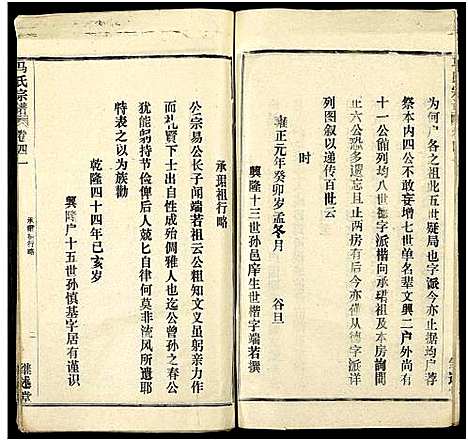 为何户各之祖此五世疑局也字派今亦户荐
祭本内四公不敢妄增七世单名辈文興二户外尚有
十一公能列均八世德字派楷向承珺祖及本房詢問
以六公恐多遗忘且止两房有后今亦催从德字派详
列图叙以递传百世云
時
雍正元年癸卯岁孟冬月 谷旦
興隆十三世孙邑庠生世楷字端若撰
马氏宗譜 卷四一
承珺祖行略
公宗易公长子闻端若祖云公粗知文义虽躬亲力作
而礼賢下士出自性成殆倜雅人也迄公曾孙之春公
犹能躬持节俭俾后人兢匕自律何莫非流风所遗耶
特表之以为族勸
乾隆四十四年己亥岁
興隆户十五世孙慎基字居有谨识
承珺祖行略
二
继述堂